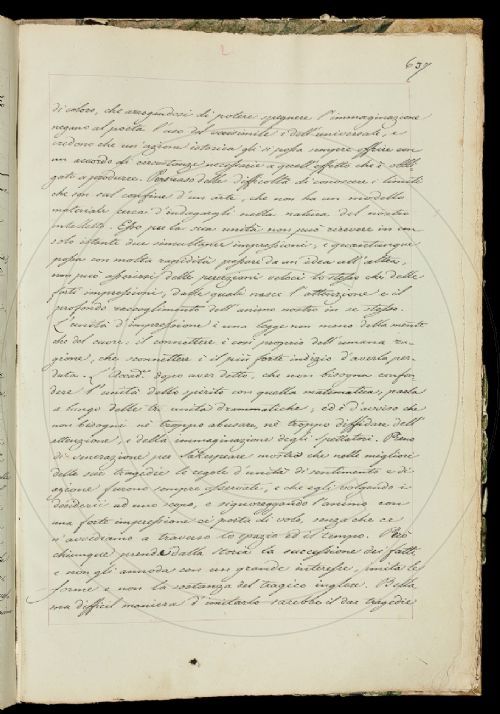 637
di coloro, che arrogandosi di potere spegnere l'immaginazione
negano al poeta l'uso del verosimile e dell'universale, e
credono che un'azione istorica gli si possa sempre offrire con
un accordo di circostanze necessarie a quell'effetto che è obbli-
gato a produrre. Persuaso delle difficoltà di conoscere i limiti
che son sul confine d'un arte, che non ha un modello
materiale cerca d'indagargli nella natura del nostro
intelletto. Esso per la sua unità non può ricevere in un
solo istante due simultanee impressioni, e quantunque
possa con molta rapidità passare da un idea all'altra,
non può associarsi delle percezioni veloci lo stesso che delle
forti impressioni, dalle quali nasce l'attenzione e il
profondo raccoglimento dell'animo nostro in se stesso.
L'unità d'impressione è una legge non meno della mente
che del cuore: il connettere è così proprio dell'umana ra-
gione, che sconnettere è il più forte indizio d'averla per-
duta. L'Accad. dopo aver detto, che non bisogna confon-
dere l'unità dello spirito con quella matematica, parla
a lungo delle tre unità drammatiche, ed è d'avviso che
non bisogni nè troppo abusare, nè troppo diffidare dell'
attenzione, e della immaginazione degli spettatori. Pieno
di venerazione per Sakespeare mostra che nelle migliori
delle sue tragedie le regole d'unità di sentimento e di
azione furono sempre osservate, e che egli volgendo i
desiderii ad uno scopo, e signoreggiando l'animo con
una forte impressione ci porta di volo, senza che ce
n'avvediamo a traverso lo spazio ed il tempo. Però
chiunque prende dalla storia la successione dei fatti,
e non gli annoda con un grande interesse, imita le
forme e non la sostanza del tragico inglese. Bella
ma difficil maniera d'imitarlo sarebbe il dar tragedie